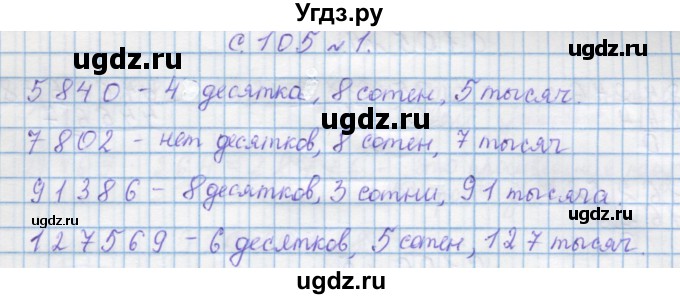 Угдз.ру
с. 105 № 1.
ugdz.ru ugdz.ru
5840 – 4 десятка, 8 сотен, 5 тысяч.
ugdz.ru
7802 – нет десятков, 8 сотен, 7 тысяч
ugdz.ru
91386 – 8 десятков, 3 сотни, 91 тысяча.
ugdz.ru ugdz.ru
127569 – 6 десятков, 5 сотен, 127 тысяч.
ugdz.ru ugdz.ru